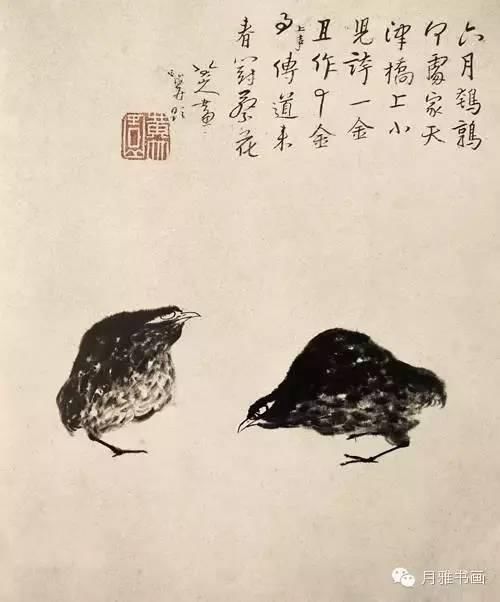 六月鵪鶉
何處家天
津橋上小
兒誇一金
且作十金
事傳道來
春鬥蔡花
八大山人畫
并題
月雅书画